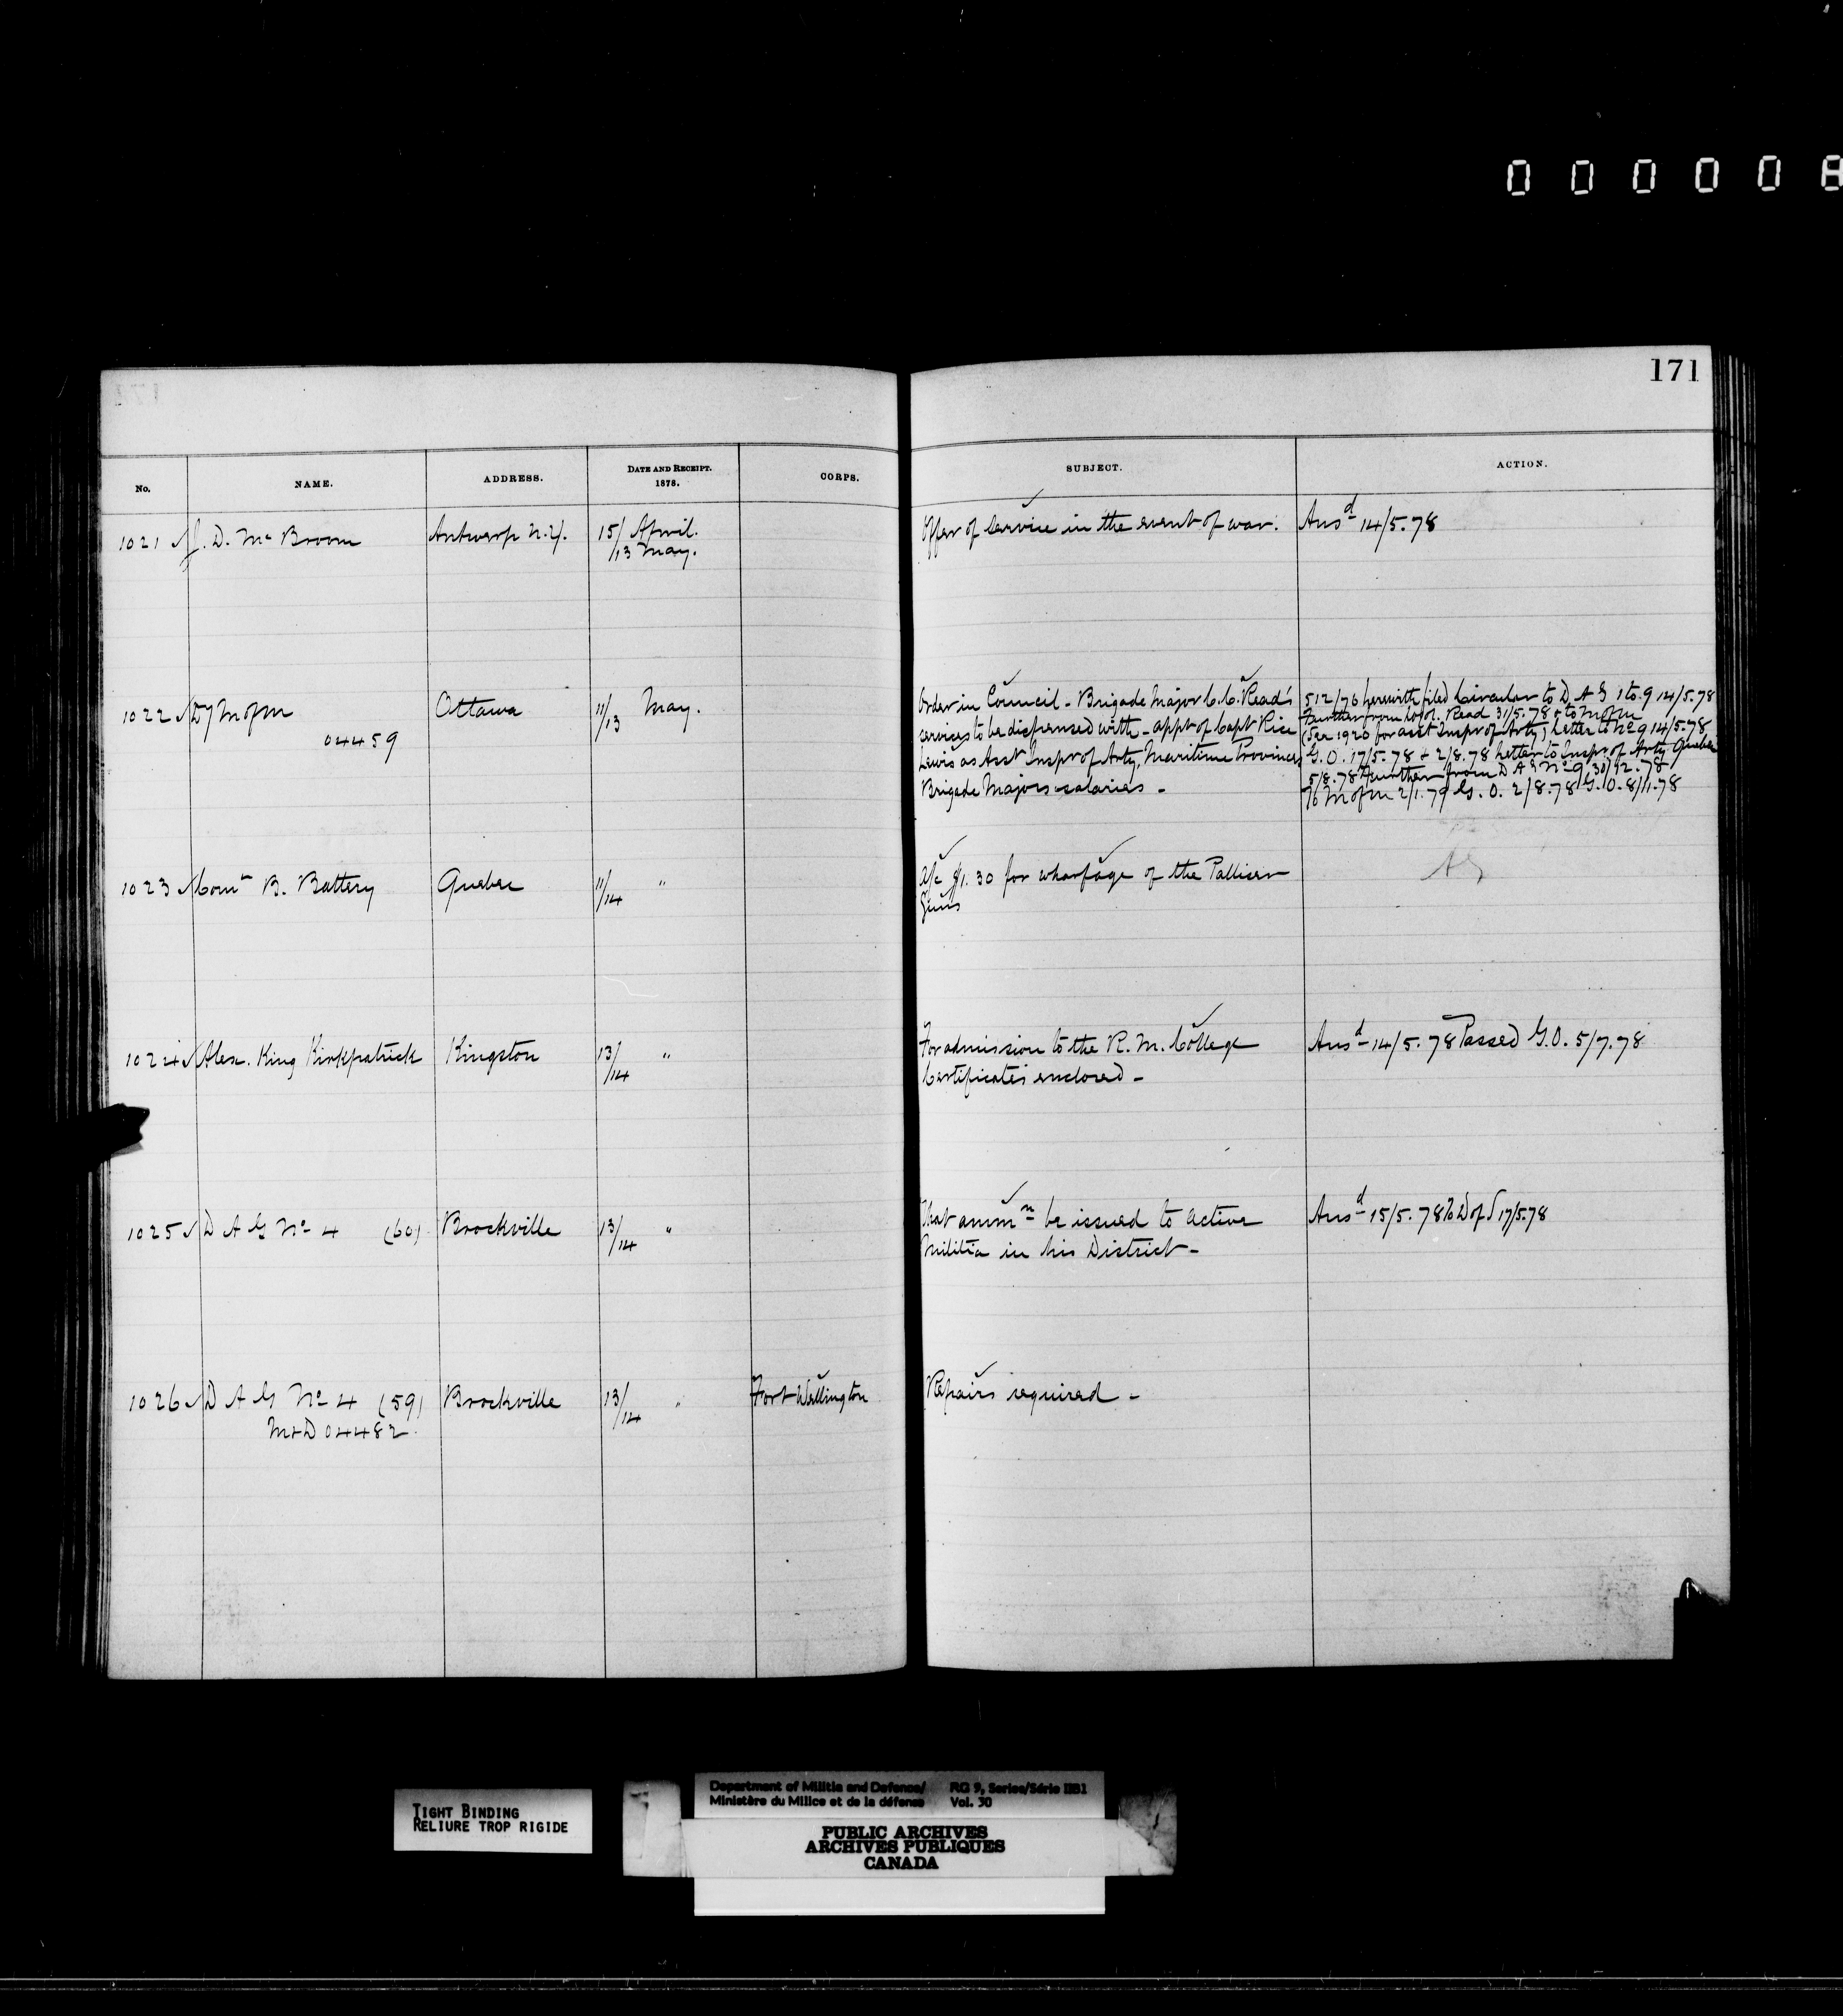 00000
171
No. NAME. ADDRESS. DATE AND RECEIPT. 1878. CORPS. SUBJECT. ACTION.
1021 J. D. Mc Broom Antwerp N.Y. 15/ April. Offer of Service in the event of war. Ansd 14/5.78
/13 May.
1022 Dy M of M Ottawa 11/13 May.
04459
Order in Council - Brigade Major C.C. Read's
services to be dispensed with - appt of Capt Rice
Lewis as Asst Inspr of Arty, Maritime Provinces
Brigade Majors salaries -
512/76 herewith filed Circular to D A G 1 to 9 14/5.78
Further from Lt Col. Read 31/5.78 & to M of M
(See 1920 for asst Inspr of Arty) Letter to No 9 14/5.78
G.O. 17/5.78 + 2/8.78 Letter to Inspr of Arty Quebec
5/8.78 Further from D A G No 9 30/12.78
To M of M 2/1.79 G.O. 2/8.78 G.O. 8/11.78
1023 Comt B. Battery Quebec 11/14 " a/c $1.30 for wharfage of the Palliser
Guns
AG
1024 Alex. King Kirkpatrick Kingston 13/14 " For admission to the R. M. College Ansd 14/5.78 Passed G.O. 5/7.78
Certificates enclosed -
1025 D A G No 4 (60) Brockville 13/14 " That ammn be issued to Active Ansd 15/5.78 To D of S 17/5.78
Militia in his District -
1026 D A G No 4 (59) Brockville 13/14 " Fort Wellington Repairs required -
M&D 04482
TIGHT BINDING
RELIURE TROP RIGIDE
Department of Militia and Defence/ RG 9, Series/Série IIB1
Ministère du Milice et de la défense Vol. 30
PUBLIC ARCHIVES
ARCHIVES PUBLIQUES
CANADA